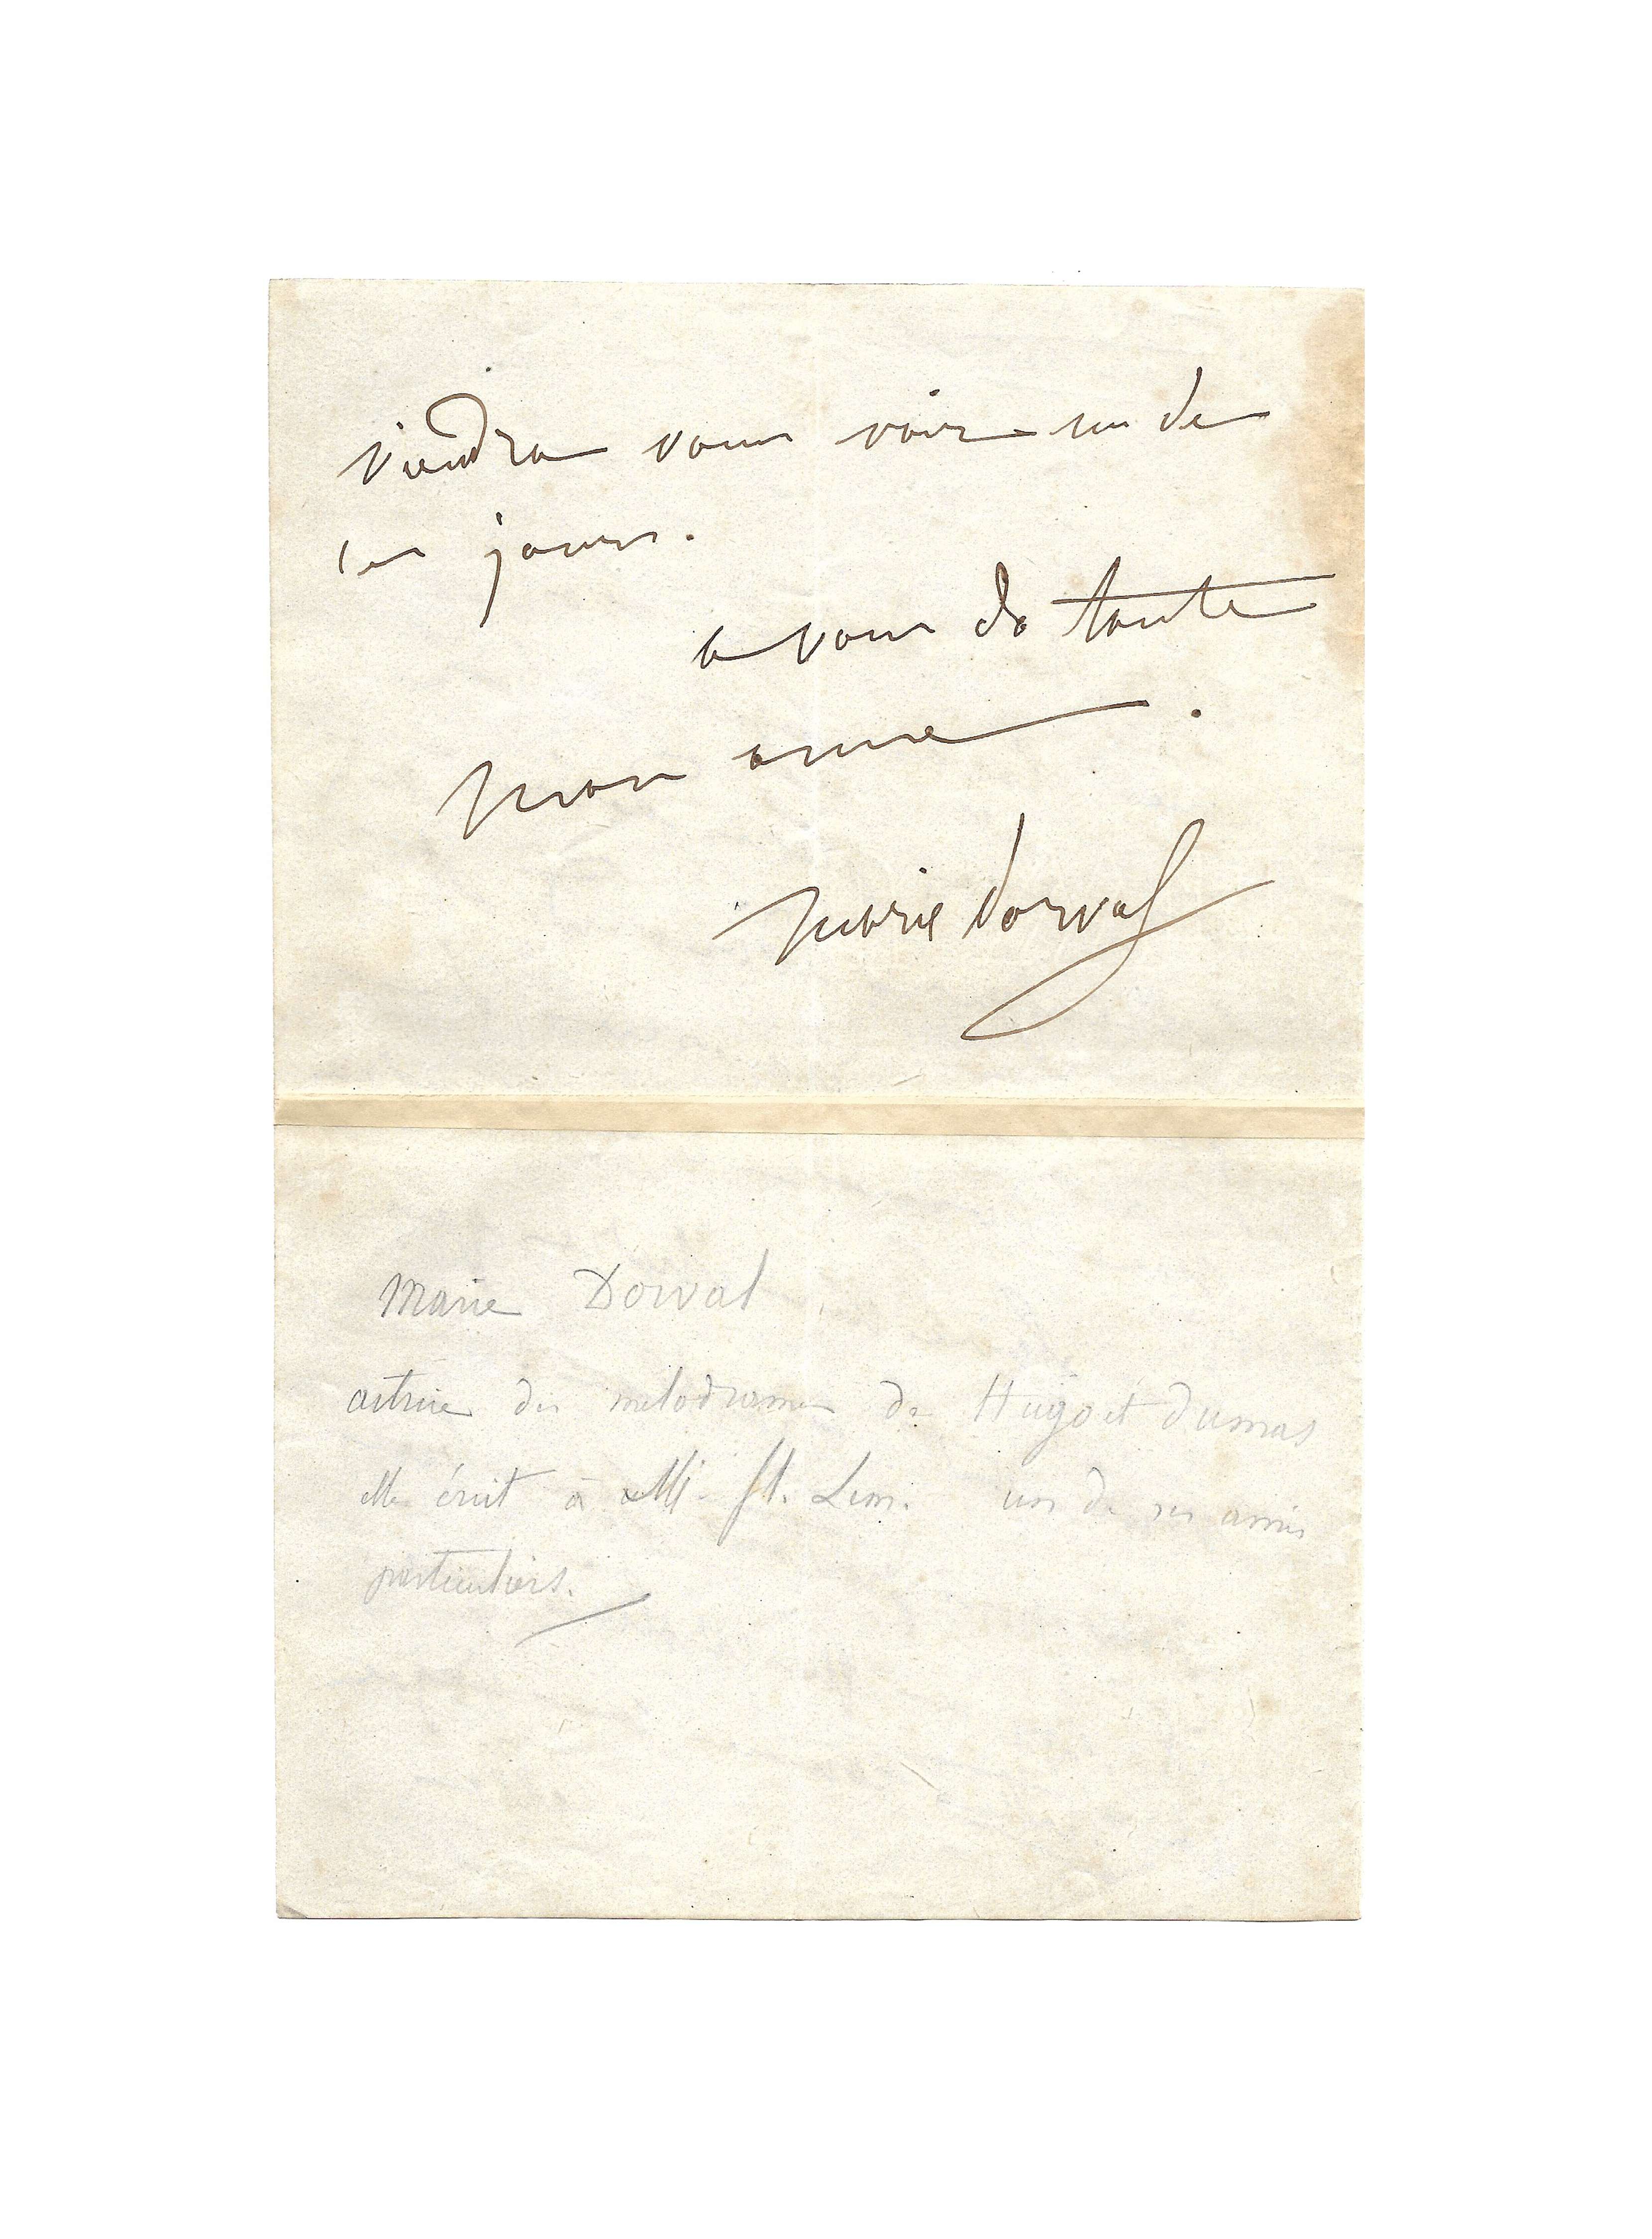 viendra vous voir un de
ces jours.
a vous de toute
mon ame.
marie dorval
Marie Dorval
actrice des mélodrames de Hugo et Dumas
elle écrit à Mr. St. un de ses amis
particuliers.